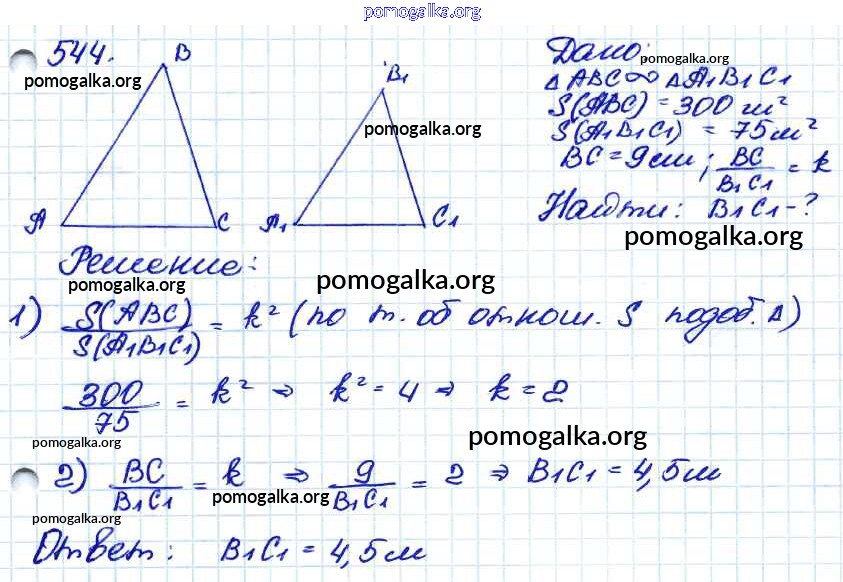 pomogalka.org
544.
B
pomogalka.org
A
C
B₁
pomogalka.org
A₁
C₁
Дано: pomogalka.org
△ABC∞△A₁B₁C₁
S(ABC) = 300 м²
S(A₁B₁C₁) = 75м²
BC = 9см; BC/B₁C₁ = k
Найти: B₁C₁ - ?
pomogalka.org
Решение:
pomogalka.org
pomogalka.org
1) S(ABC)/S(A₁B₁C₁) = k² (по т. об отнош. S подоб. △)
300/75 = k² ⇒ k² = 4 ⇒ k = 2
pomogalka.org
pomogalka.org
2) BC/B₁C₁ = k ⇒ 9/B₁C₁ = 2 ⇒ B₁C₁ = 4,5м
pomogalka.org
pomogalka.org
Ответ: B₁C₁ = 4,5м
pomogalka.org